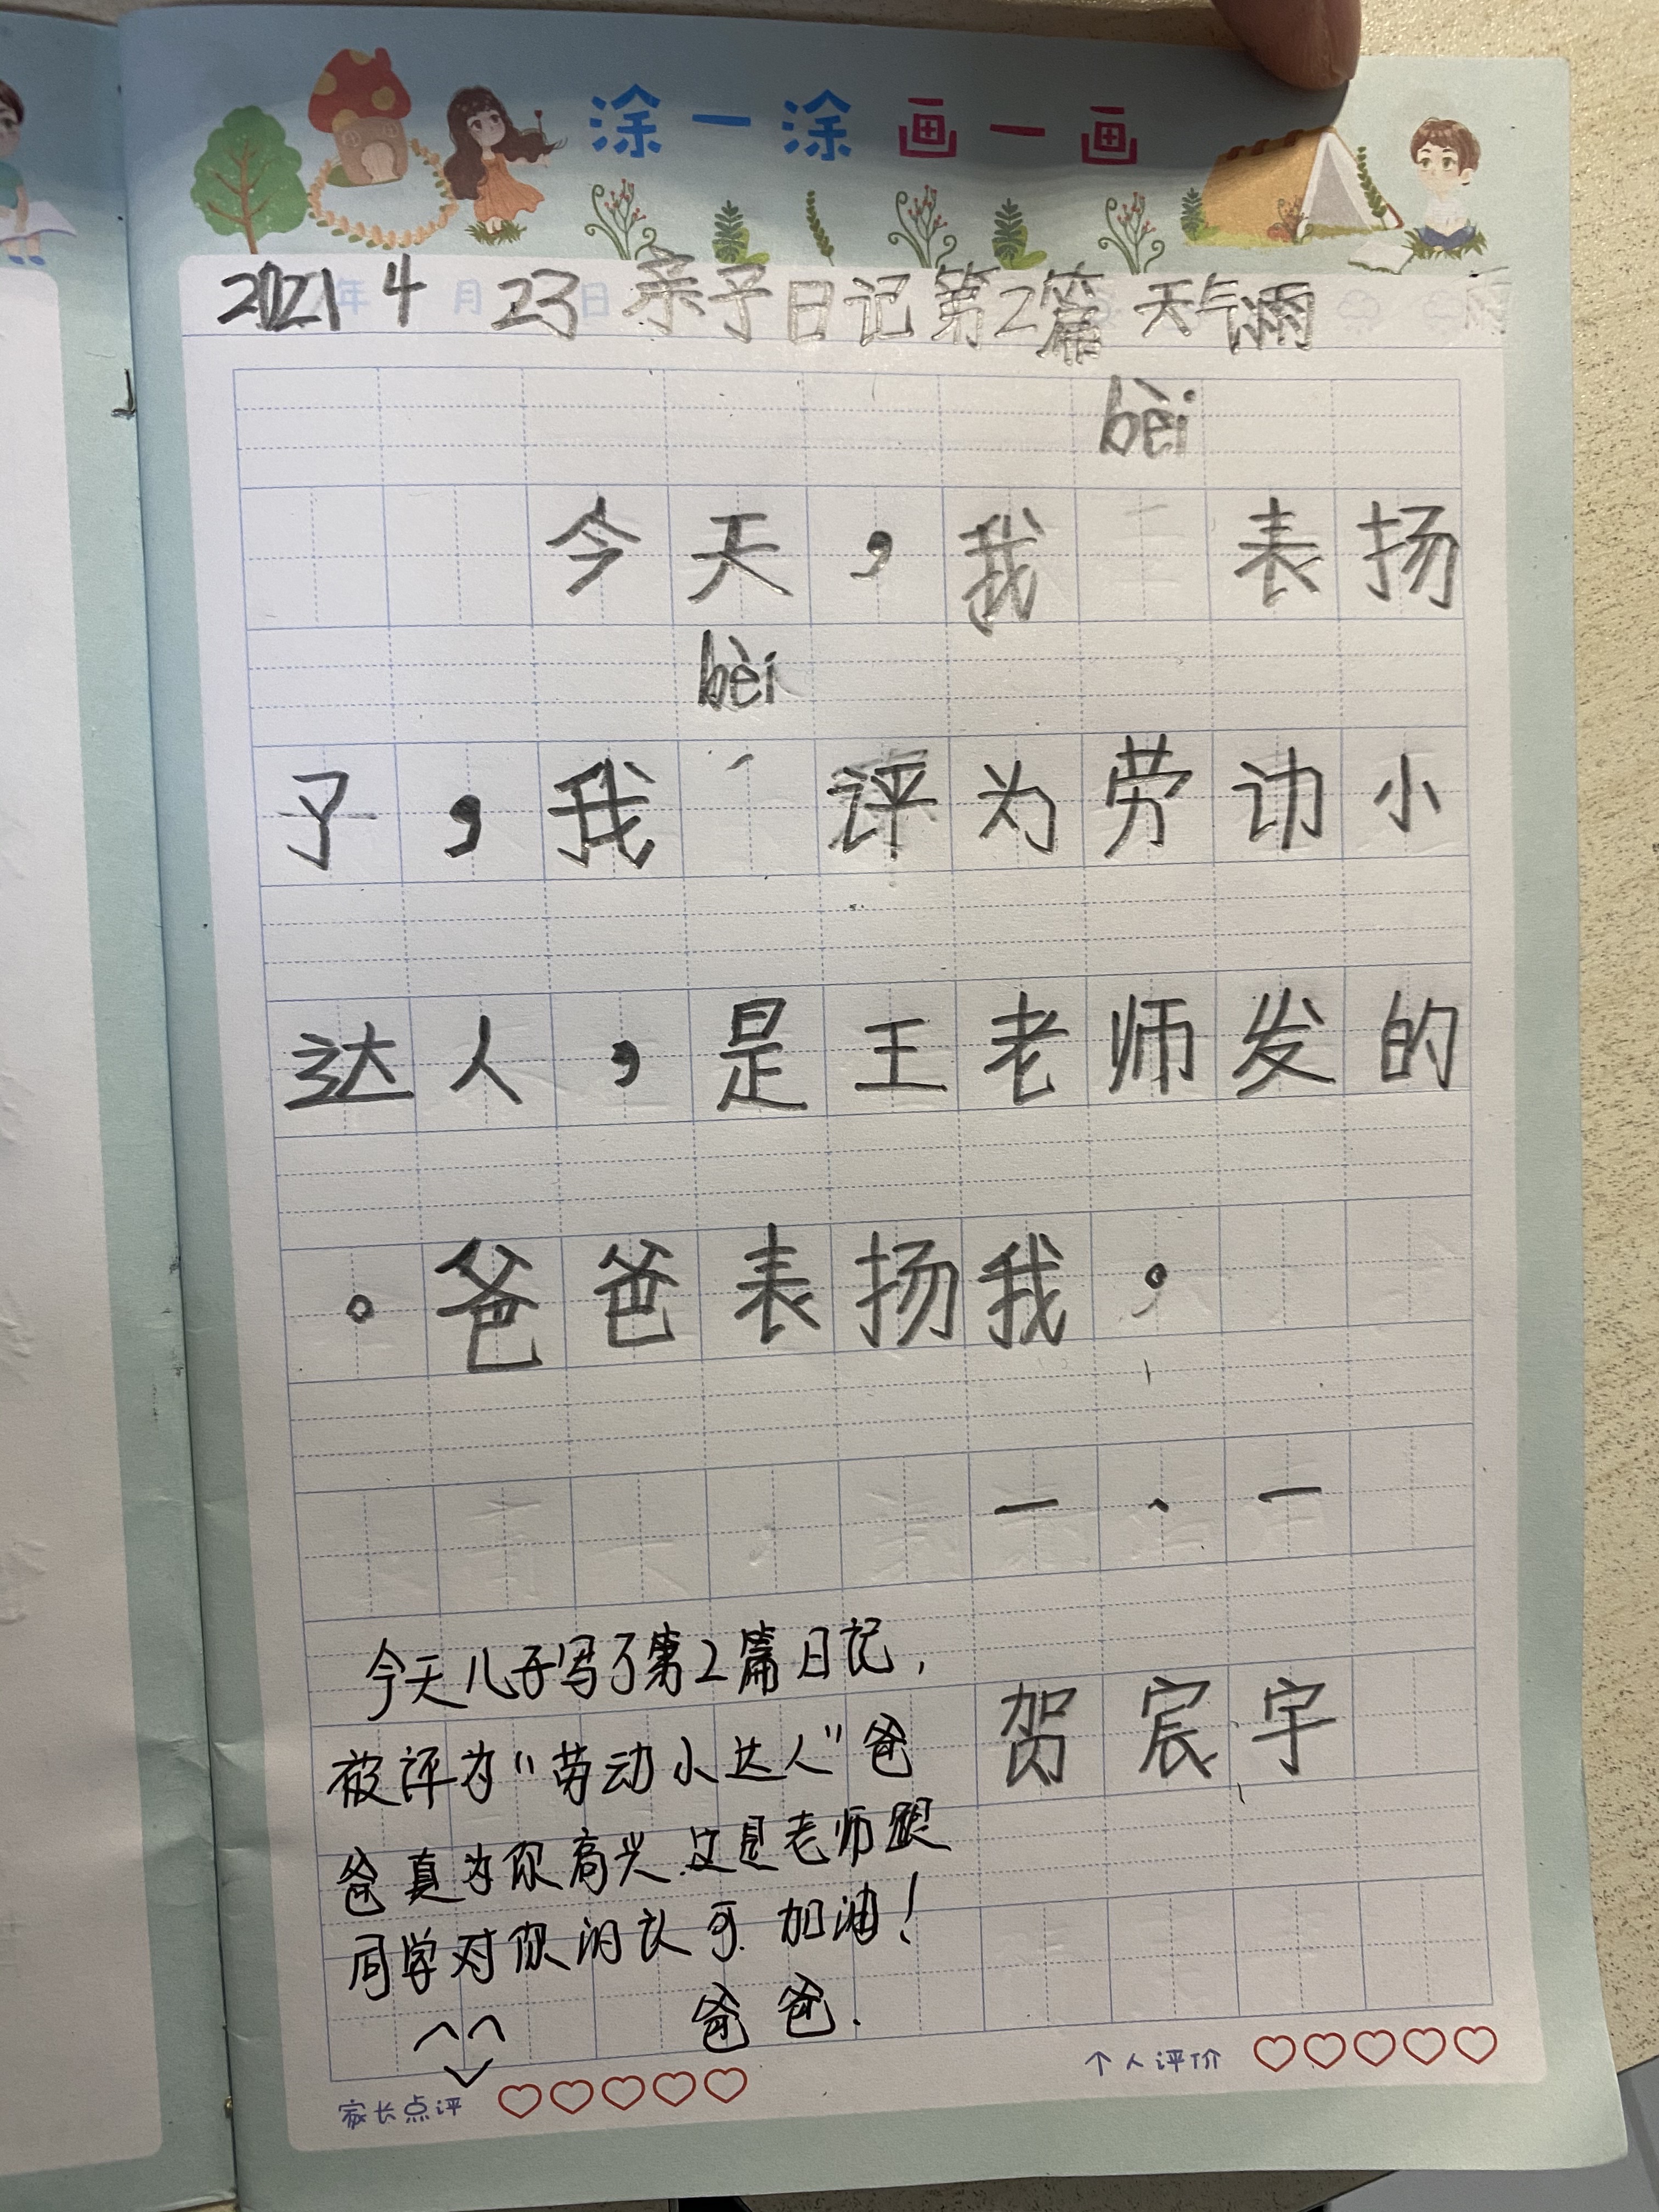 涂一涂 画一画
2021年4月23日 亲子日记第2篇 天气雨
bèi
今天，我 表扬
bèi
子，我 评为劳动小
达人，是王老师发的
。爸爸表扬我。
今天儿子写了第2篇日记，
被评为“劳动小达人”爸
贺宸宇
爸真为你高兴.这是老师跟
同学对你的认可.加油！
爸爸.
个人评价
家长点评